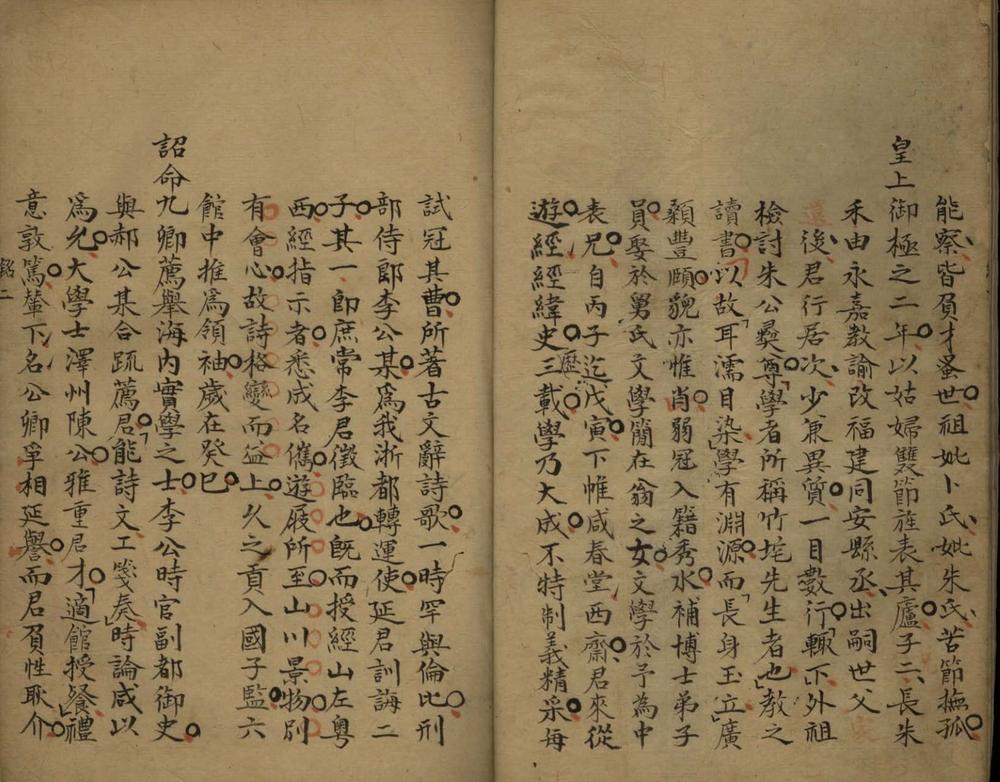 能察皆負才蚤世祖妣卜氏妣朱氏苦節撫孤
皇上御極之二年以姑婦雙節旌表其廬子二長朱
禾由永嘉教諭改福建同安縣丞出嗣世父
後君行居次少兼異質一目數行輒下外祖
檢討朱公彝尊學者所稱竹垞先生者也教之
讀書以故耳濡目染學有淵源而長身玉立廣
顙豐頤貌亦惟肖弱冠入籍秀水補博士弟子
員娶於舅氏文學簡在翁之女文學於予為中
表兄自丙子迄戊寅下帷咸春堂西齋君來從
遊經經緯史三歷載學乃大成不特制義精采每
試冠其曹所著古文辭詩歌一時罕與倫比刑
部侍郎李公某爲我浙都轉運使延君訓誨二
子其一卽庶常李君徵臨也旣而授經山左粵
西經指示者悉成名儁遊屐所至山川景物別
有會心故詩格變而益上久之貢入國子監六
館中推爲領袖歲在癸巳
詔命九卿薦舉海內實學之士李公時官副都御史
與郝公某合疏薦君能詩文工箋奏時論咸以
爲允大學士澤州陳公雅重君才適館授餐禮
意敦篤輦下名公卿爭相延譽而君負性耿介